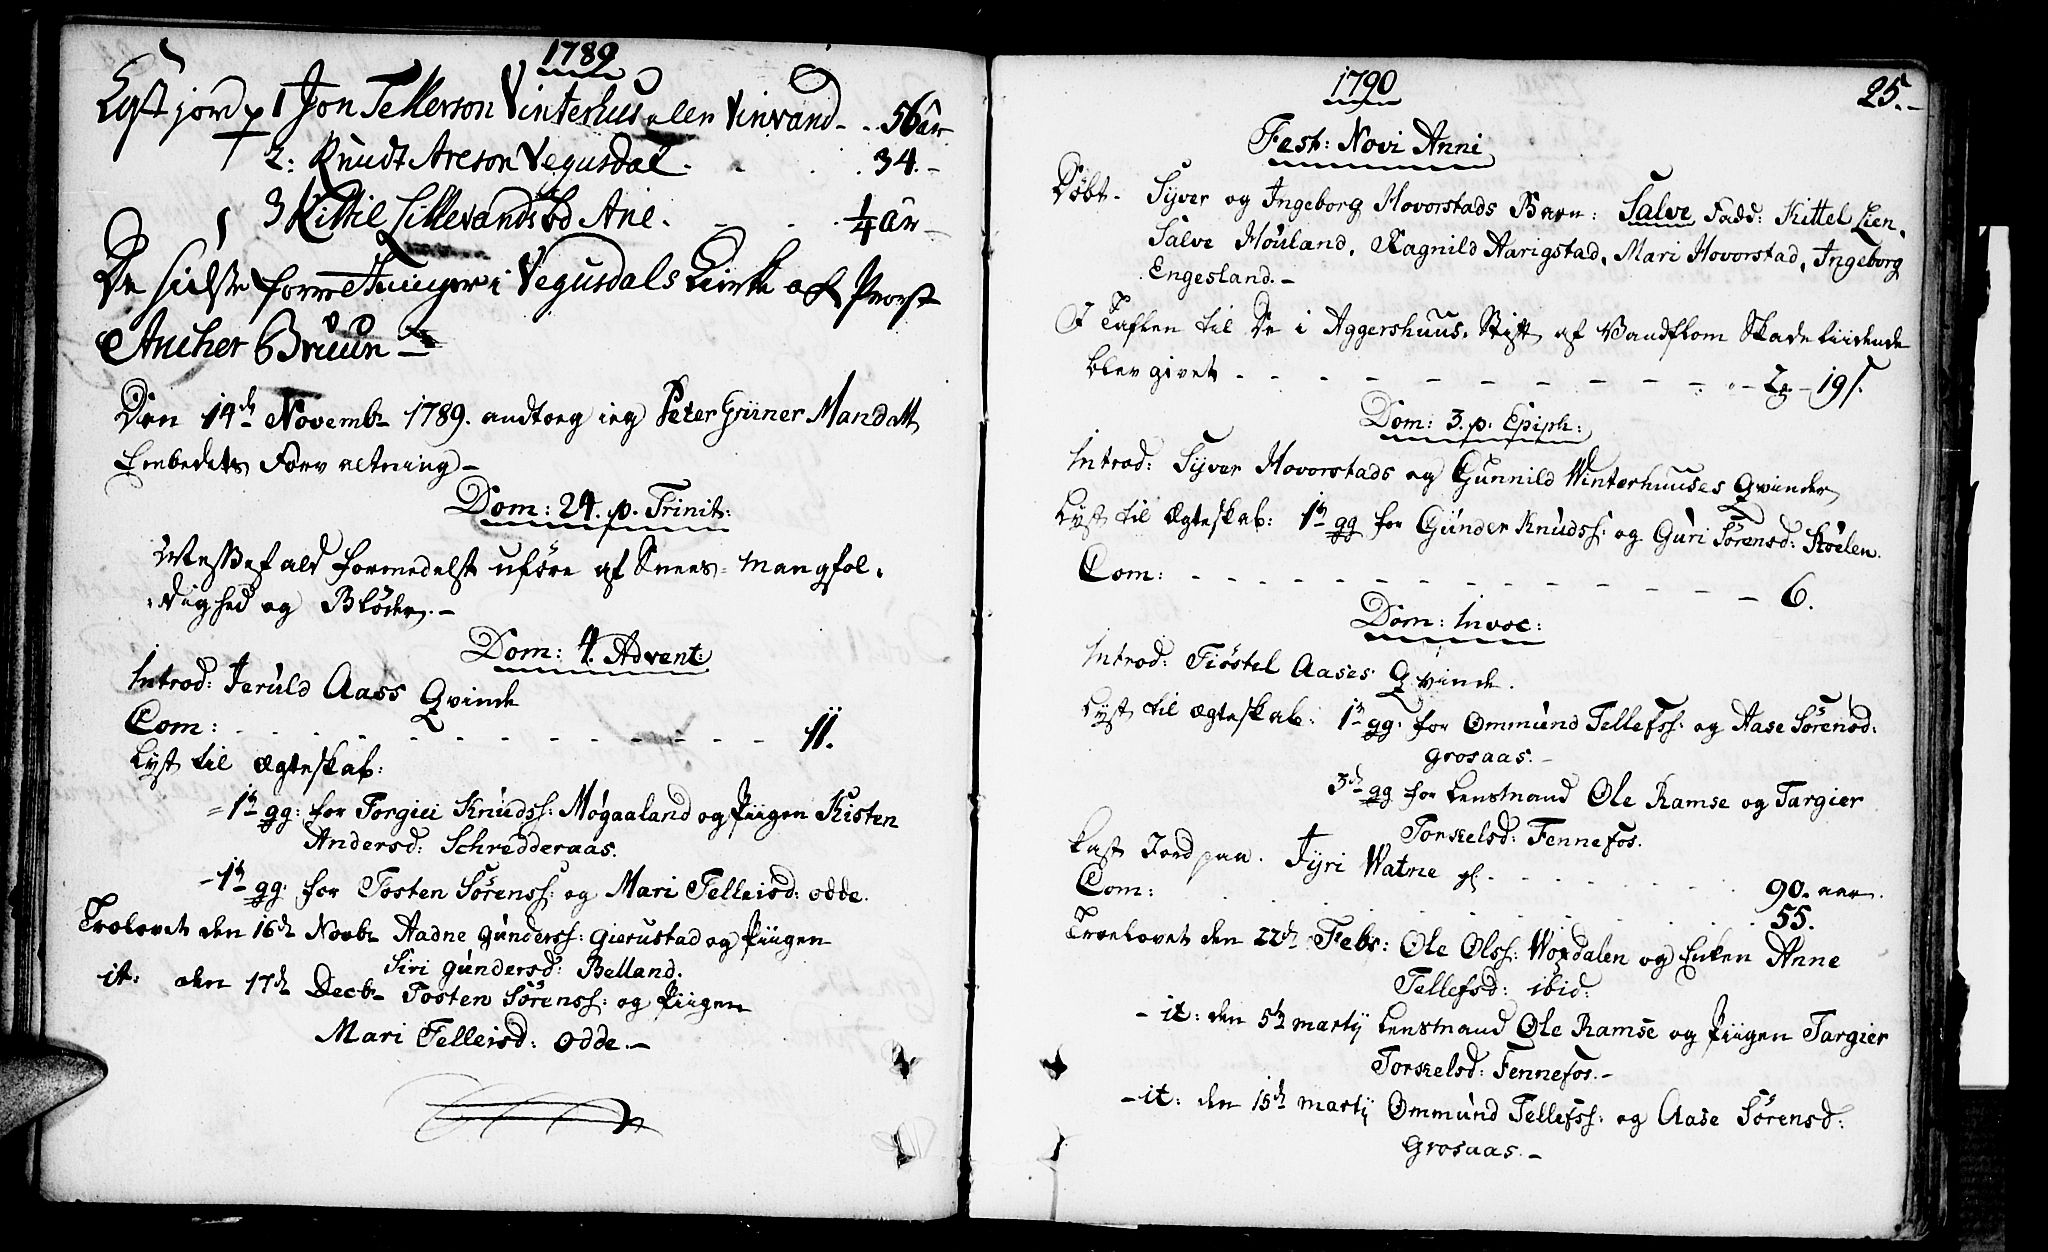 1789
Kast jord p 1 Jon Tellerson Vinterhus alen Vinvand - . 56 år
2: Knudt Areson Vegusdal . . . 34. -
3 Kittil Lillevandsød Ane . - - 1/4 år -
De sidste forretninger i Vegusdals Kirke af Provst
Ancher Bruun -
Den 14de Novembr 1789. andtoog ieg Peter Grüner Mandatt
Embedets Forvaltning -
Dom: 24. p. Trinit:
Messefald formedelst uføre af Snees- mangfol-
-dighed og Bløder. -
Dom: 4. Advent:
Introd: Jeruld Aass Qvinde
Com: - - - - - - - - - - - 11.
Lyst til Ægteskab:
= 1te gg: for Torgiei Knudss: Møgaaland og Piigen Kisten
Andersd: Schredderaas.
- 1te gg: for Tosten Sørenss: og Mari Telleisd: odde.
Trolovet den 16de Novbr Aadne Gunderss: Gierustad og Piigen
Siri Gundersd: Belland.
it: den 17de Decbr Tosten Sørenss: og Piigen
Mari Telleisd: odde. -
1790
25. -
Fest: Novi Anni
Døbt - Syver og Ingeborg Hovorstads Barn: Salve Fadd: Kittel Lien,
Salve Høuland, Ragnild Aarigstad, Mari Hovorstad, Ingeborg
Engesland. -
I Taflen til De i Aggershuus Stift af Vandflom Skadeliidende
blev givet - - - - - - - - - - 2 - 19 s.
Dom: 3. p. Epiph:
Introd: Syver Hovorstads og Gunnild Winterhuuses Qvinder
Lyst til Ægteskab: 1te gg for Günder Knudss: og Guri Sørensd: Støelen.
Com: - - - - - - - - - - - - 6.
Dom: Invoc:
Introd: Tiøstel Aases Qvinde.
Lyst til ægteskab: 1te gg: for Ommund Tellefss: og Aase Sørensd:
Grosaas. -
3de gg for Lensmand Ole Ramse og Targier
Torkelsd: Fennefos.
Kast Jord paa. Jyri Watne gl - - - - 90. aar.
Com: . . . . . . . 55.
Troelovet den 22de Febr: Ole Olss: Wordalen og Enken Anne
Tellefsd: ibid:
- it: den 5te martij Lensmand Ole Ramse og Piigen Targier
Torkelsd: Fennefos. -
- it: den 15de martij Ommund Tellefss: og Aase Sørensd:
Grosaas. -